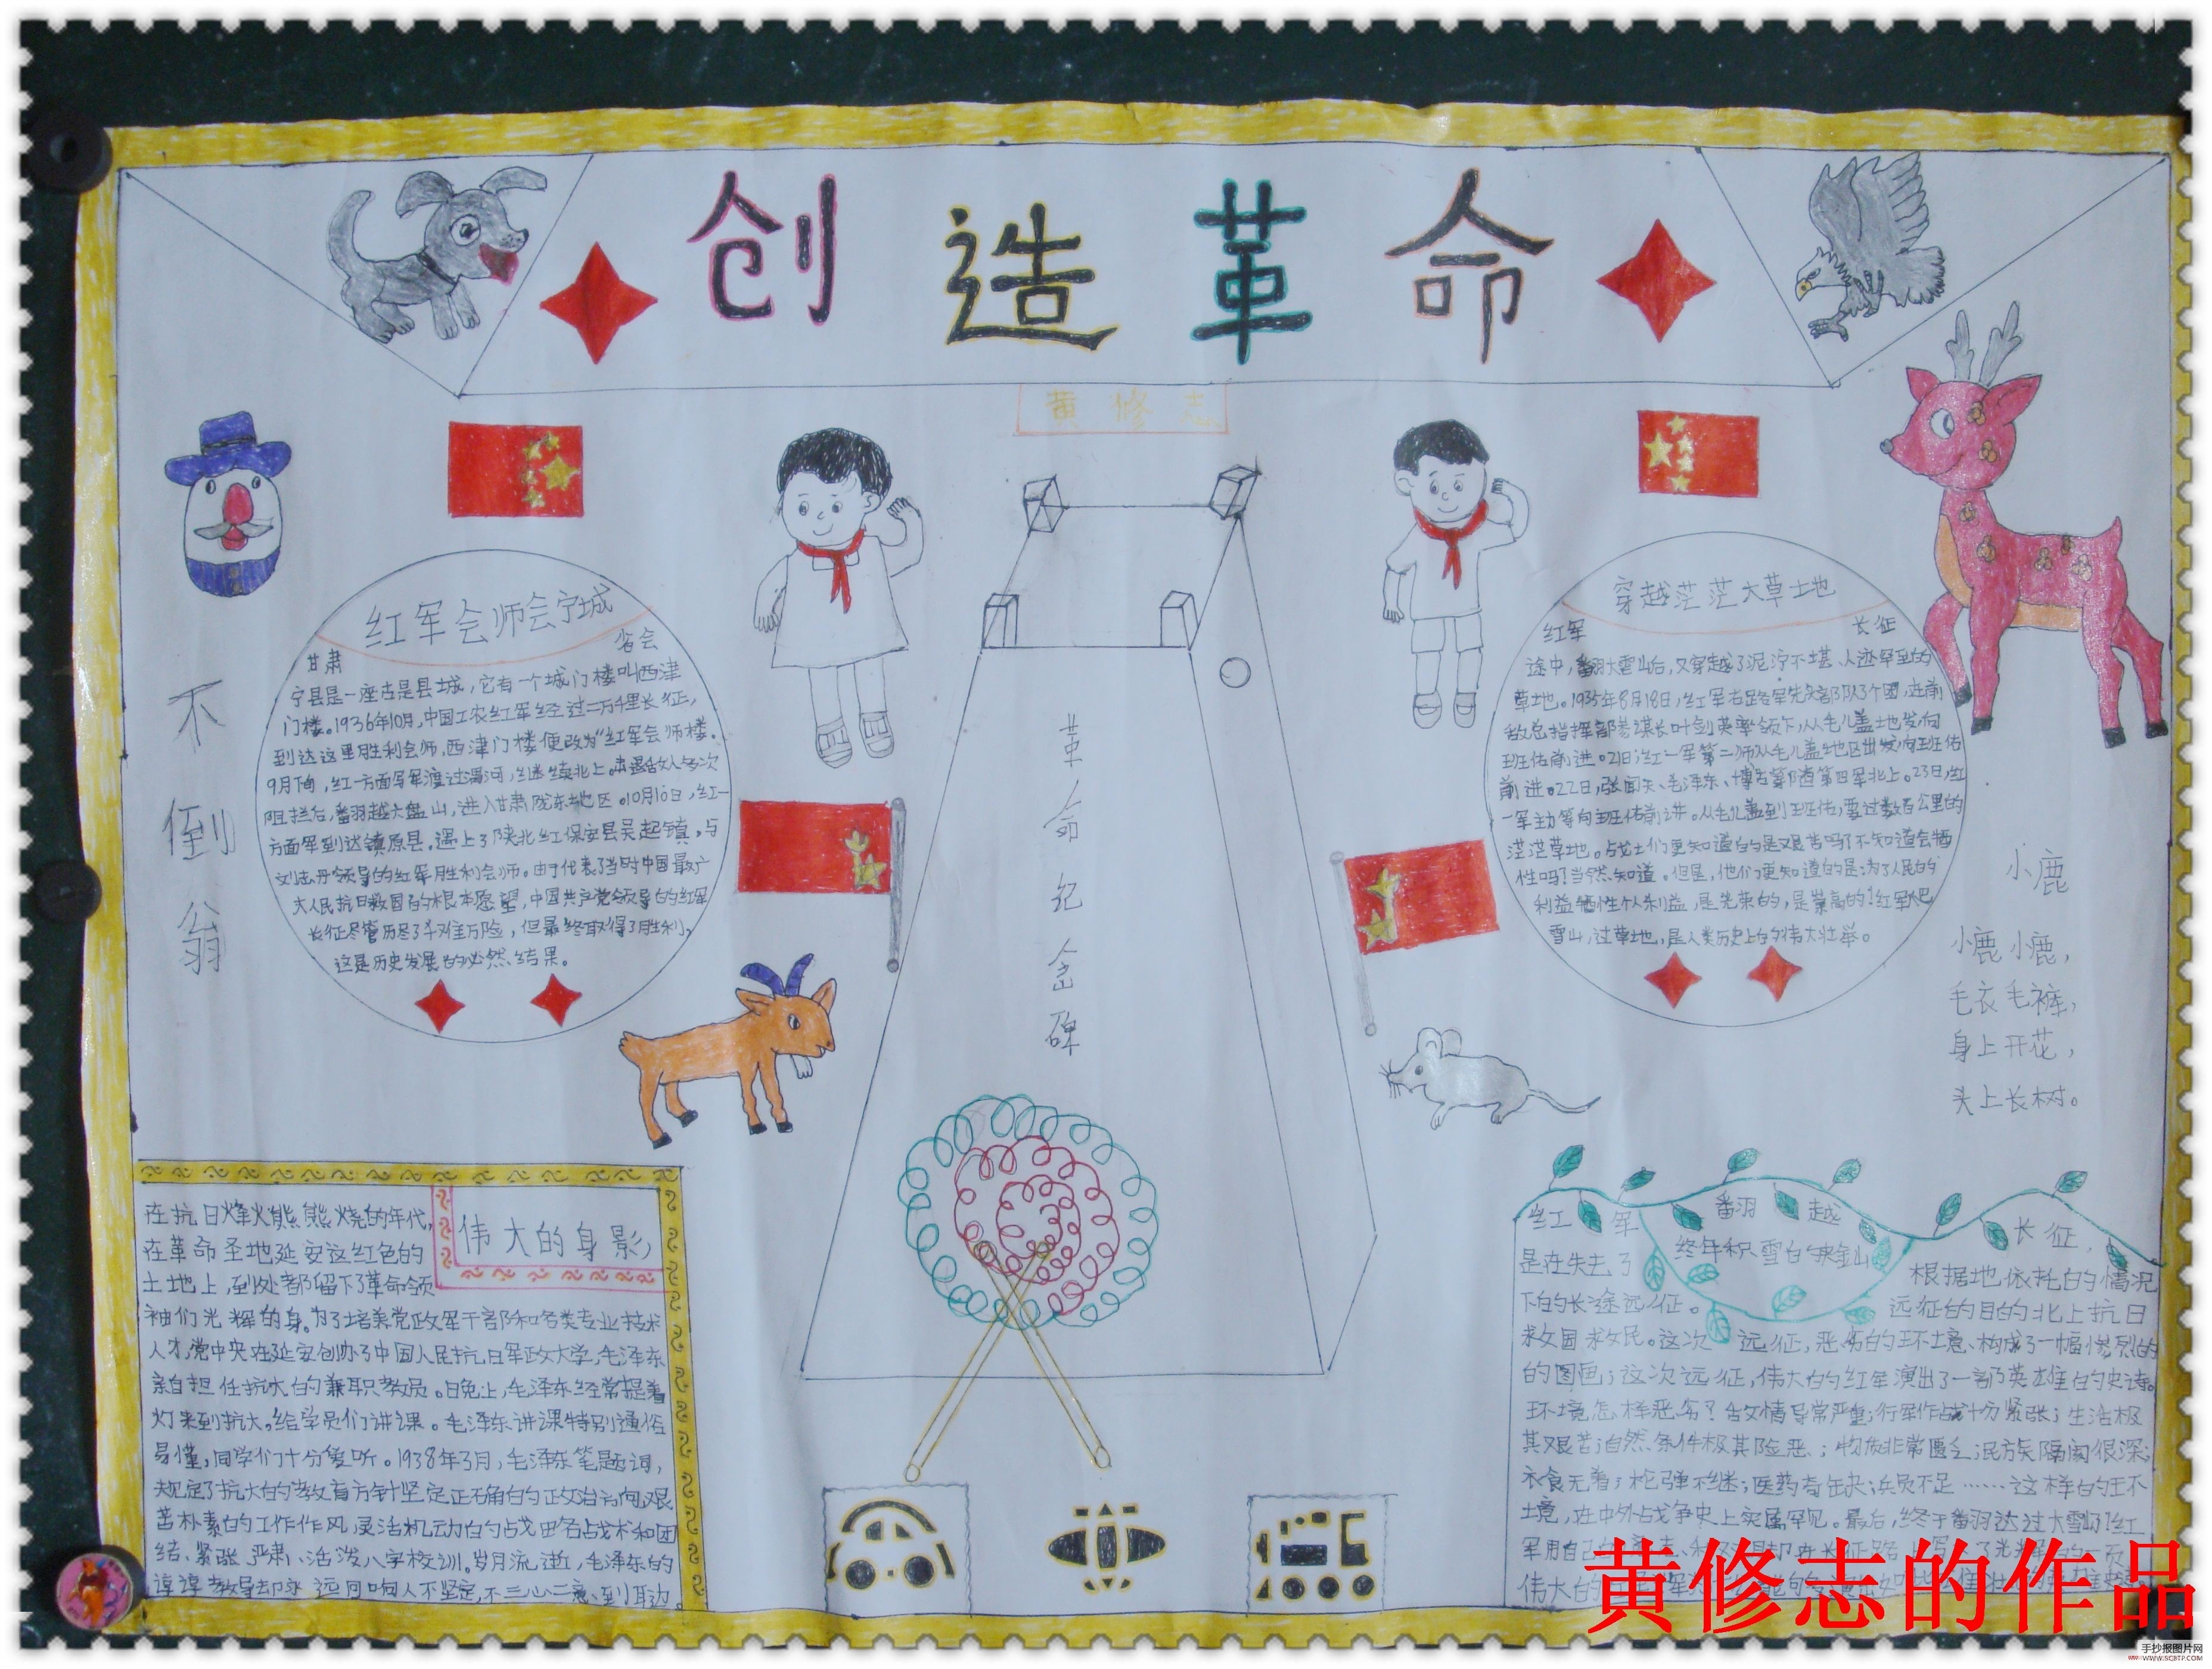 创造革命
黄修志
红军会师会宁城
甘肃 省会
宁县是一座古是县城，它有一个城门楼叫西津
门楼。1936年10月，中国工农红军经过二万千里长征，
到达这里胜利会师，西津门楼便改为“红军会师楼。
9月下旬，红一方面军渡过渭河，继续北上。
阻拦后，翻越六盘山，进入甘肃陇东地区。10月10日，红一
方面军到达镇原县。遇上了陕北红保安县吴起镇，与
刘志丹领导的红军胜利会师。由于代表了当时中国最广
大人民抗日救国的根本愿望，中国共产党领导的红军
长征尽管历尽了千难万险，但最终取得了胜利，
这是历史发展的必然结果。
穿越茫茫大草土地
红军 长征
途中，翻大雪山后，又穿越了泥泞不堪、人迹罕至的
草地。1935年8月18日，红军右路军先头部队3个团，在前
敌总指挥部参谋长叶剑英率领下，从毛儿盖地发向
班佑前进。21日，红一军第二师从毛儿盖地区出发向班佑
前进。22日，张闻天、毛泽东、博古等随第四军北上。23日，红
一军主力等向班佑前进。从毛儿盖到班佑，要过数百公里的
茫茫草地。战士们更知道的是艰苦吗？不知道会牺
牲吗？当然知道。但是，他们更知道的是：为了人民的
利益牺牲个人利益，是光荣的，是崇高的！红军爬
雪山，过草地，是人类历史上的伟大壮举。
不倒翁
革命纪念碑
小鹿
小鹿小鹿，
毛衣毛裤，
身上开花，
头上长树。
伟大的身影
在抗日烽火熊熊烧的年代，
在革命圣地延安这红色的
土地上，到处都留下了革命领
袖们光辉的身。为了培养党政军干部和各类专业技术
人才，党中央在延安创办了中国人民抗日军政大学，毛泽东
亲自担任抗大的兼职教员。日晚上，毛泽东经常提着
灯来到抗大。给学员们讲课。毛泽东讲课特别通俗
易懂，同学们十分爱听。1938年3月，毛泽东笔题词，
规定了抗大的教育方针坚定正确的政治方向，艰
苦朴素的工作作风，灵活机动的战略战术和团
结、紧张、严肃、活泼八字校训。岁月流逝，毛泽东的
谆谆教导却永远回响人不坚定，不三心二意、到耳边。
红军翻越
终年积雪白夹金山
长征，
是在失去了根据地依托的情况
下的长途远征。远征的目的北上抗日
救国救民。这次远征，恶劣的环境、构成了一幅惨烈的
的图画；这次远征，伟大的红军演出了一部英雄的史诗。
环境怎样恶劣？敌情异常严重；行军作战十分紧张；生活极
其艰苦；自然条件极其险恶；物质非常匮乏；民族隔阂很深；
衣食无着；枪弹不继；医药奇缺；兵员不足……这样的环
境，在中外战争史上实属罕见。最后，终于翻达过大雪山！红
军用自己的
伟大的
黄修志的作品
手抄报图片网
WWW.SCBTP.COM